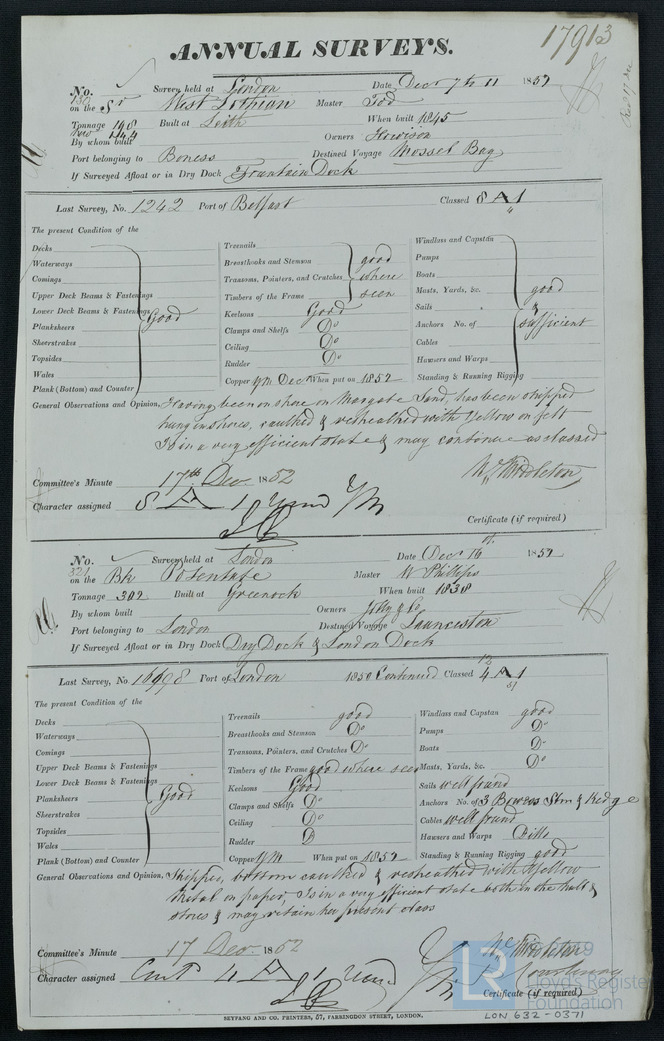 17913
ANNUAL SURVEYS.
No. Survey held at London Date Decr 7th 11 1852
on the Sr West Lothian Master Tod
Tonnage 198 Built at Leith When built 1845
New 144
By whom built Owners Howison
Port belonging to Boness Destined Voyage Mossel Bay
If Surveyed Afloat or in Dry Dock Fountain Dock
Last Survey, No. 1242 Port of Belfast Classed 8 A 1
The present Condition of the
Decks
Waterways
Comings
Upper Deck Beams & Fastenings
Lower Deck Beams & Fastenings
Planksheers
Sheerstrakes
Topsides
Wales
Plank (Bottom) and Counter
Good
Treenails
Breasthooks and Stemson
Transoms, Pointers, and Crutches
Timbers of the Frame
good where seen
Keelsons Good
Clamps and Shelfs Do
Ceiling Do
Rudder Do
Copper YM Decr When put on 1852
Windlass and Capstan
Pumps
Boats
Masts, Yards, &c.
Sails
Anchors No. of
Cables
Hawsers and Warps
Standing & Running Rigging
good & sufficient
General Observations and Opinion, Having been on shore on Margate Sand, has been stripped
hung in shores, caulked & resheathed with Yellow on felt
Is in a very efficient state & may continue as classed
Wm Middleton
Committee's Minute 17th Dec 1852
Character assigned 8 A 1
Certificate (if required)
No. Survey held at London Date Decr 16 1852
321
on the Bk Potentate Master W Phillips
Tonnage 302 Built at Greenock When built 1838
By whom built Owners
Port belonging to London Destined Voyage Launceston
If Surveyed Afloat or in Dry Dock Dry Dock & London Dock
Last Survey, No. Port of London 1850 Continued Classed 4 A 1
The present Condition of the
Decks
Waterways
Comings
Upper Deck Beams & Fastenings
Lower Deck Beams & Fastenings
Planksheers
Sheerstrakes
Topsides
Wales
Plank (Bottom) and Counter
Good
Treenails good
Breasthooks and Stemson Do
Transoms, Pointers, and Crutches Do
Timbers of the Frame good where seen
Keelsons Good
Clamps and Shelfs Do
Ceiling Do
Rudder D
Copper YM When put on 1852
Windlass and Capstan good
Pumps Do
Boats Do
Masts, Yards, &c. Do
Sails well found
Anchors No. of 3 Bowers Strm & Kedge
Cables well found
Hawsers and Warps Ditto
Standing & Running Rigging good
General Observations and Opinion, Stripped, bottom caulked & resheathed with Yellow
Metal on paper, Is in a very efficient state both in the hull &
stores & may retain her present class
Wm Middleton
Committee's Minute 17 Dec. 1852
Character assigned Cont 4 A 1
Certificate (if required)
SEYFANG AND CO. PRINTERS, 57, FARRINGDON STREET, LONDON.
LON 632-0371
LR
Lloyd's Register
Foundation